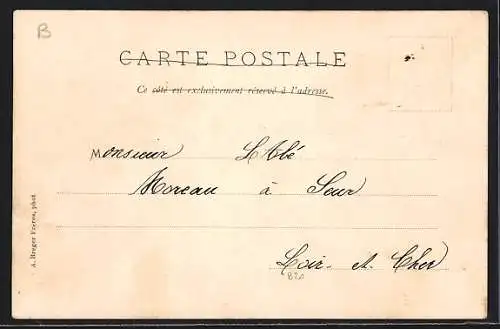 B
CARTE POSTALE
Ce côté est exclusivement réservé à l'adresse.
Monsieur L'Abé
Moreau à Seur
Loir-et-Cher
820
A. Breger Frères, phot